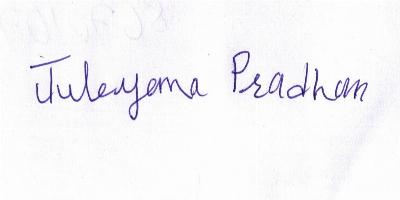 Juleyama Pradhan